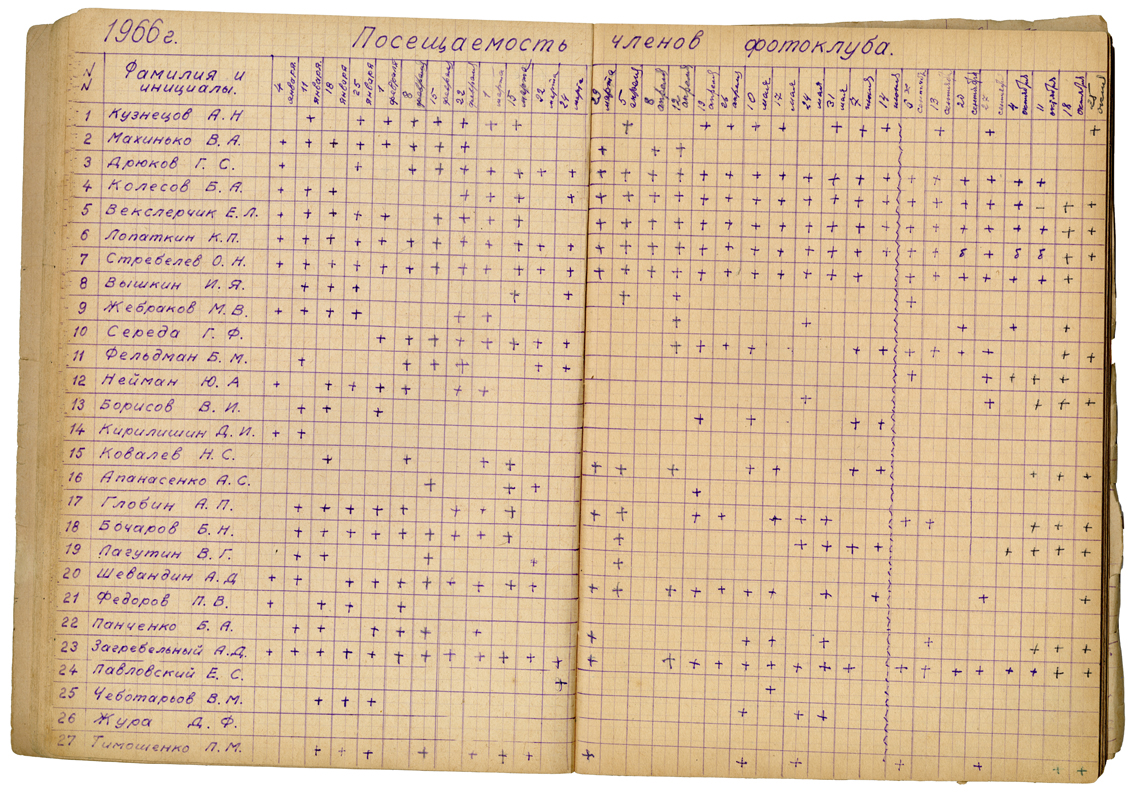 1966 г. Посещаемость членов фотоклуба.
№№ Фамилия и инициалы. 4 января 11 января 18 января 25 января 1 февраля 8 февраля 15 февраля 22 февраля 1 марта 15 марта 22 марта 24 марта 29 марта 5 апреля 8 апреля 12 апреля 19 апреля 26 апреля 10 мая 17 мая 24 мая 31 мая 7 июня 14 июня 13 сентября 20 сентября 27 сентября 4 октября 11 октября 18 октября 25 октября
1 Кузнецов А. Н
2 Махинько В. А.
3 Дрюков Г. С.
4 Колесов Б. А.
5 Векслерчик Е. Л.
6 Лопаткин К. П.
7 Стребелев О. Н.
8 Вышкин И. Я.
9 Жебраков М. В.
10 Середа Г. Ф.
11 Фельдман Б. М.
12 Нейман Ю. А
13 Борисов В. И.
14 Кирилишин Д. И.
15 Ковалев Н. С.
16 Апанасенко А. С.
17 Глобин А. П.
18 Бочаров Б. Н.
19 Лагутин В. Г.
20 Шевандин А. Д
21 Федоров П. В.
22 Панченко Б. А.
23 Загребельный А. Д.
24 Павловский Е. С.
25 Чеботарьов В. М.
26 Жура Д. Ф.
27 Тимошенко Л. М.